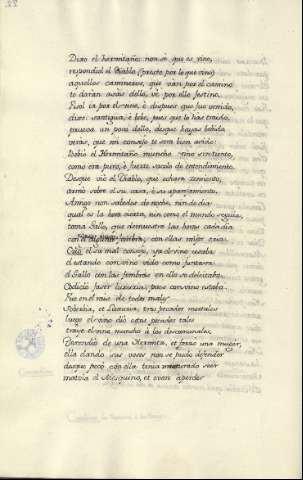 Dixo el Hermitaño: non sé que es vino,
respondiol el Diablo (presto por lo que vino)
aquellos caminéros, que ván por el camino
te darán asás dello, vé por ello festino.
Fisol ir por el vino, è despues que fue venido,
dixo: santigua, è bebe, pues que lo has traido,
prueva un poco dello, desque hayas bebido
verás, que mi consejo te será bien avido.
Bebió el Hermitaño mucho vino sin tiento,
como era puro, è fuerte, sacolo de entendimiento.
Desque vió el Diablo, que echára cimiento,
armó sobre él su casa, è su aparejamiento.
Amigo non sabedes de noche, nin de dia
qual es la hora cierta, nin como el mundo se guia,
toma Gallo, que demuestra las horas cada dia
con él alguna fembra, con ellas mejor cria.
Creió el su mal consejo, ya el vino usaba
él estando con vino vido como juntava
el Gallo con las fembras en ello se deleitaba.
Codició facer luxuria, pues con vino estaba.
Fue en él raiz de todo mal
Sobervia, et Luxuria, tres pecados mortales
luego el omecidio estos pecados tales
traye el vino mucho à los descomunales.
Decendió de una Hermita, et forzó una muger,
ella dando sus voces non se pudo defender
desque pecó con ella temió mesturado seer
matóla el Mesquino, et ovose à perder